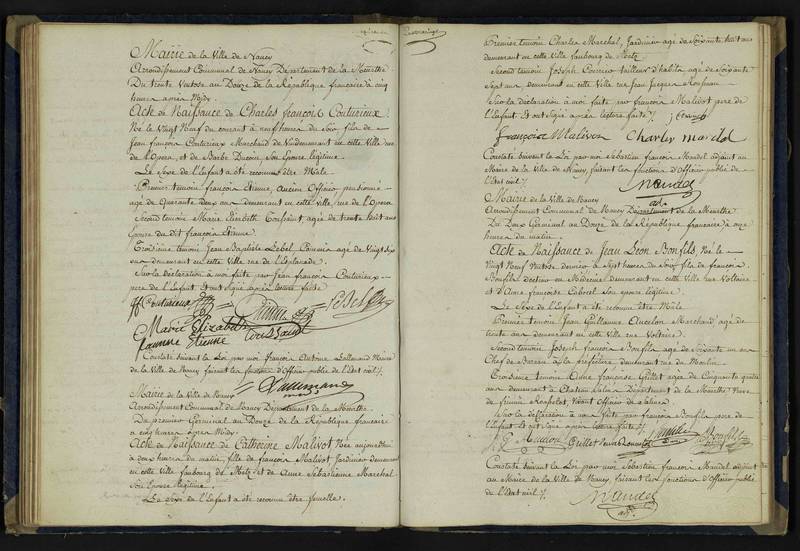 Mairie de la Ville de Nancy
Arrondissement Communal de Nancy Département de la Meurthe
Du trente Ventose an Douze de la République française à cinq
heures après Midy
Acte de Naissance de Charles françois Couturieux
Né le Vingt Neuf du courant à neuf heures du Soir fils de
Jean françois Couturieux Marchand de demeurant en cette Ville rue
de l'Opera, et de Barbe Ducou, Son Epouse légitime.
Le Sexe de l'Enfant a été reconnu être Mâle
Premier temoin françois Etienne, ancien Officier pensionné
agé de Quarante deux ans demeurant en cette Ville, rue de l'Opera
Second temoin Marie Elisabeth Toussaint agée de trente huit ans
Epouse du dit françois Etienne
Troisieme temoin Jean Baptiste Lebel Commis agé de Vingt Six
ans demeurant en cette Ville rue de l'Esplanade
Sur la déclaration à moi faite par Jean françois Couturieux
pere de l'Enfant et ont Signé après lecture faite
Couturieux Etienne Lebel
Marie Elizabeth toussaint
femme Etienne
Constaté Suivant la Loi par moi françois Antoine Lallemand Maire
de la Ville de Nancy faisant les fonctions d'Officier public de l'Etat civil
Lallemand
Mairie de la Ville de Nancy
Arrondissement Communal de Nancy Département de la Meurthe
Du premier Germinal an Douze de la République française
à cinq heures après Midy
Acte de Naissance de Catherine Malivot Née aujourdhuy
à deux heures du matin, fille de françois Malivot Jardinier demeurant
en cette Ville faubourg de Metz et de Anne Sébastienne Marchal
Son Epouse légitime
Le Sexe de l'Enfant a été reconnu être femelle.
Premier temoin Charles Marchal, Jardinier agé de Soixante huit ans
demeurant en cette Ville faubourg de Metz
Second temoin Joseph tailleur d'habits agé de Soixante
Sept ans demeurant en cette Ville rue Jean Jacques Rousseau
Sur la déclaration à moi faite par françois Malivot pere de
l'Enfant et ont Signé après lecture faite
françois Malivot Charles marchal
Constaté Suivant la Loi par moi Sébastien françois Mandel adjoint au
Maire de la Ville de Nancy, faisant les fonctions d'Officier public de
l'Etat civil
Mandel
adj.
Mairie de la Ville de Nancy
Arrondissement Communal de Nancy Département de la Meurthe
Du Deux Germinal an Douze de la République française à neuf
heures du matin
Acte de Naissance de Jean Léon Bonfils, Né le
Vingt Neuf Ventose dernier à Sept heures du Soir fils de françois
Bonfils docteur en Médecine demeurant en cette Ville rue Voltaire
et d'Anne françoise Son Epouse légitime
Le Sexe de l'Enfant a été reconnu être Mâle
Premier temoin Jean Guillaume Marchand agé de
trente ans demeurant en cette Ville rue Voltaire.
Second temoin Joseph françois Bonfils agé de Soixante un ans
Chef de Bureau à la préfecture demeurant rue du Moulin
Troisieme temoin Anne françoise Grillet agée de Cinquante quatre
ans demeurant à Château Salins Département de la Meurthe Veuve
de
Sur la déclaration à moi faite par françois Bonfils pere de
l'Enfant et ont Signé après lecture faite
Grillet Bonfils
Constaté Suivant la Loi par moi Sébastien françois Mandel adjoint
au Maire de la Ville de Nancy, faisant les fonctions d'Officier public
de l'Etat civil
Mandel
adj.